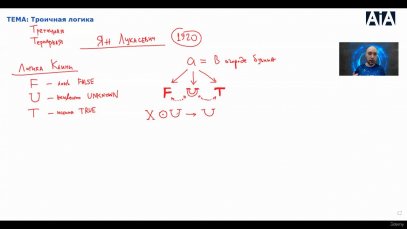 ТЕМА: Троичная логика
AiA
Троичная
Тернарная
Ян Лукасевич 1920
Логика Клини
a = В огороде бузина
F — ложь FALSE
F U T
U — неизвест UNKNOWN
T — истина TRUE
X ⊙ U → U
Udemy